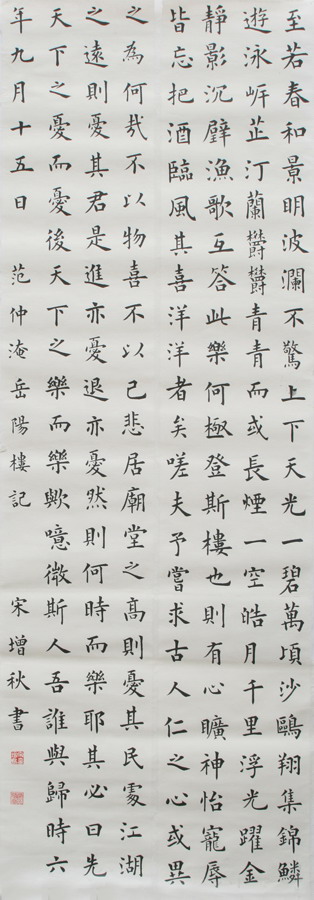 至若春和景明波瀾不驚上下天光一碧萬頃沙鷗翔集錦鱗
遊泳岸芷汀蘭欝欝青青而或長煙一空皓月千里浮光躍金
靜影沉璧漁歌互答此樂何極登斯樓也則有心曠神怡寵辱
皆忘把酒臨風其喜洋洋者矣嗟夫予嘗求古人仁之心或異
之為何哉不以物喜不以己悲居廟堂之高則憂其民處江湖
之遠則憂其君是進亦憂退亦憂然則何時而樂耶其必曰先
天下之憂而憂後天下之樂而樂歟噫微斯人吾誰與歸時六
年九月十五日 范仲淹岳陽樓記 宋增秋書